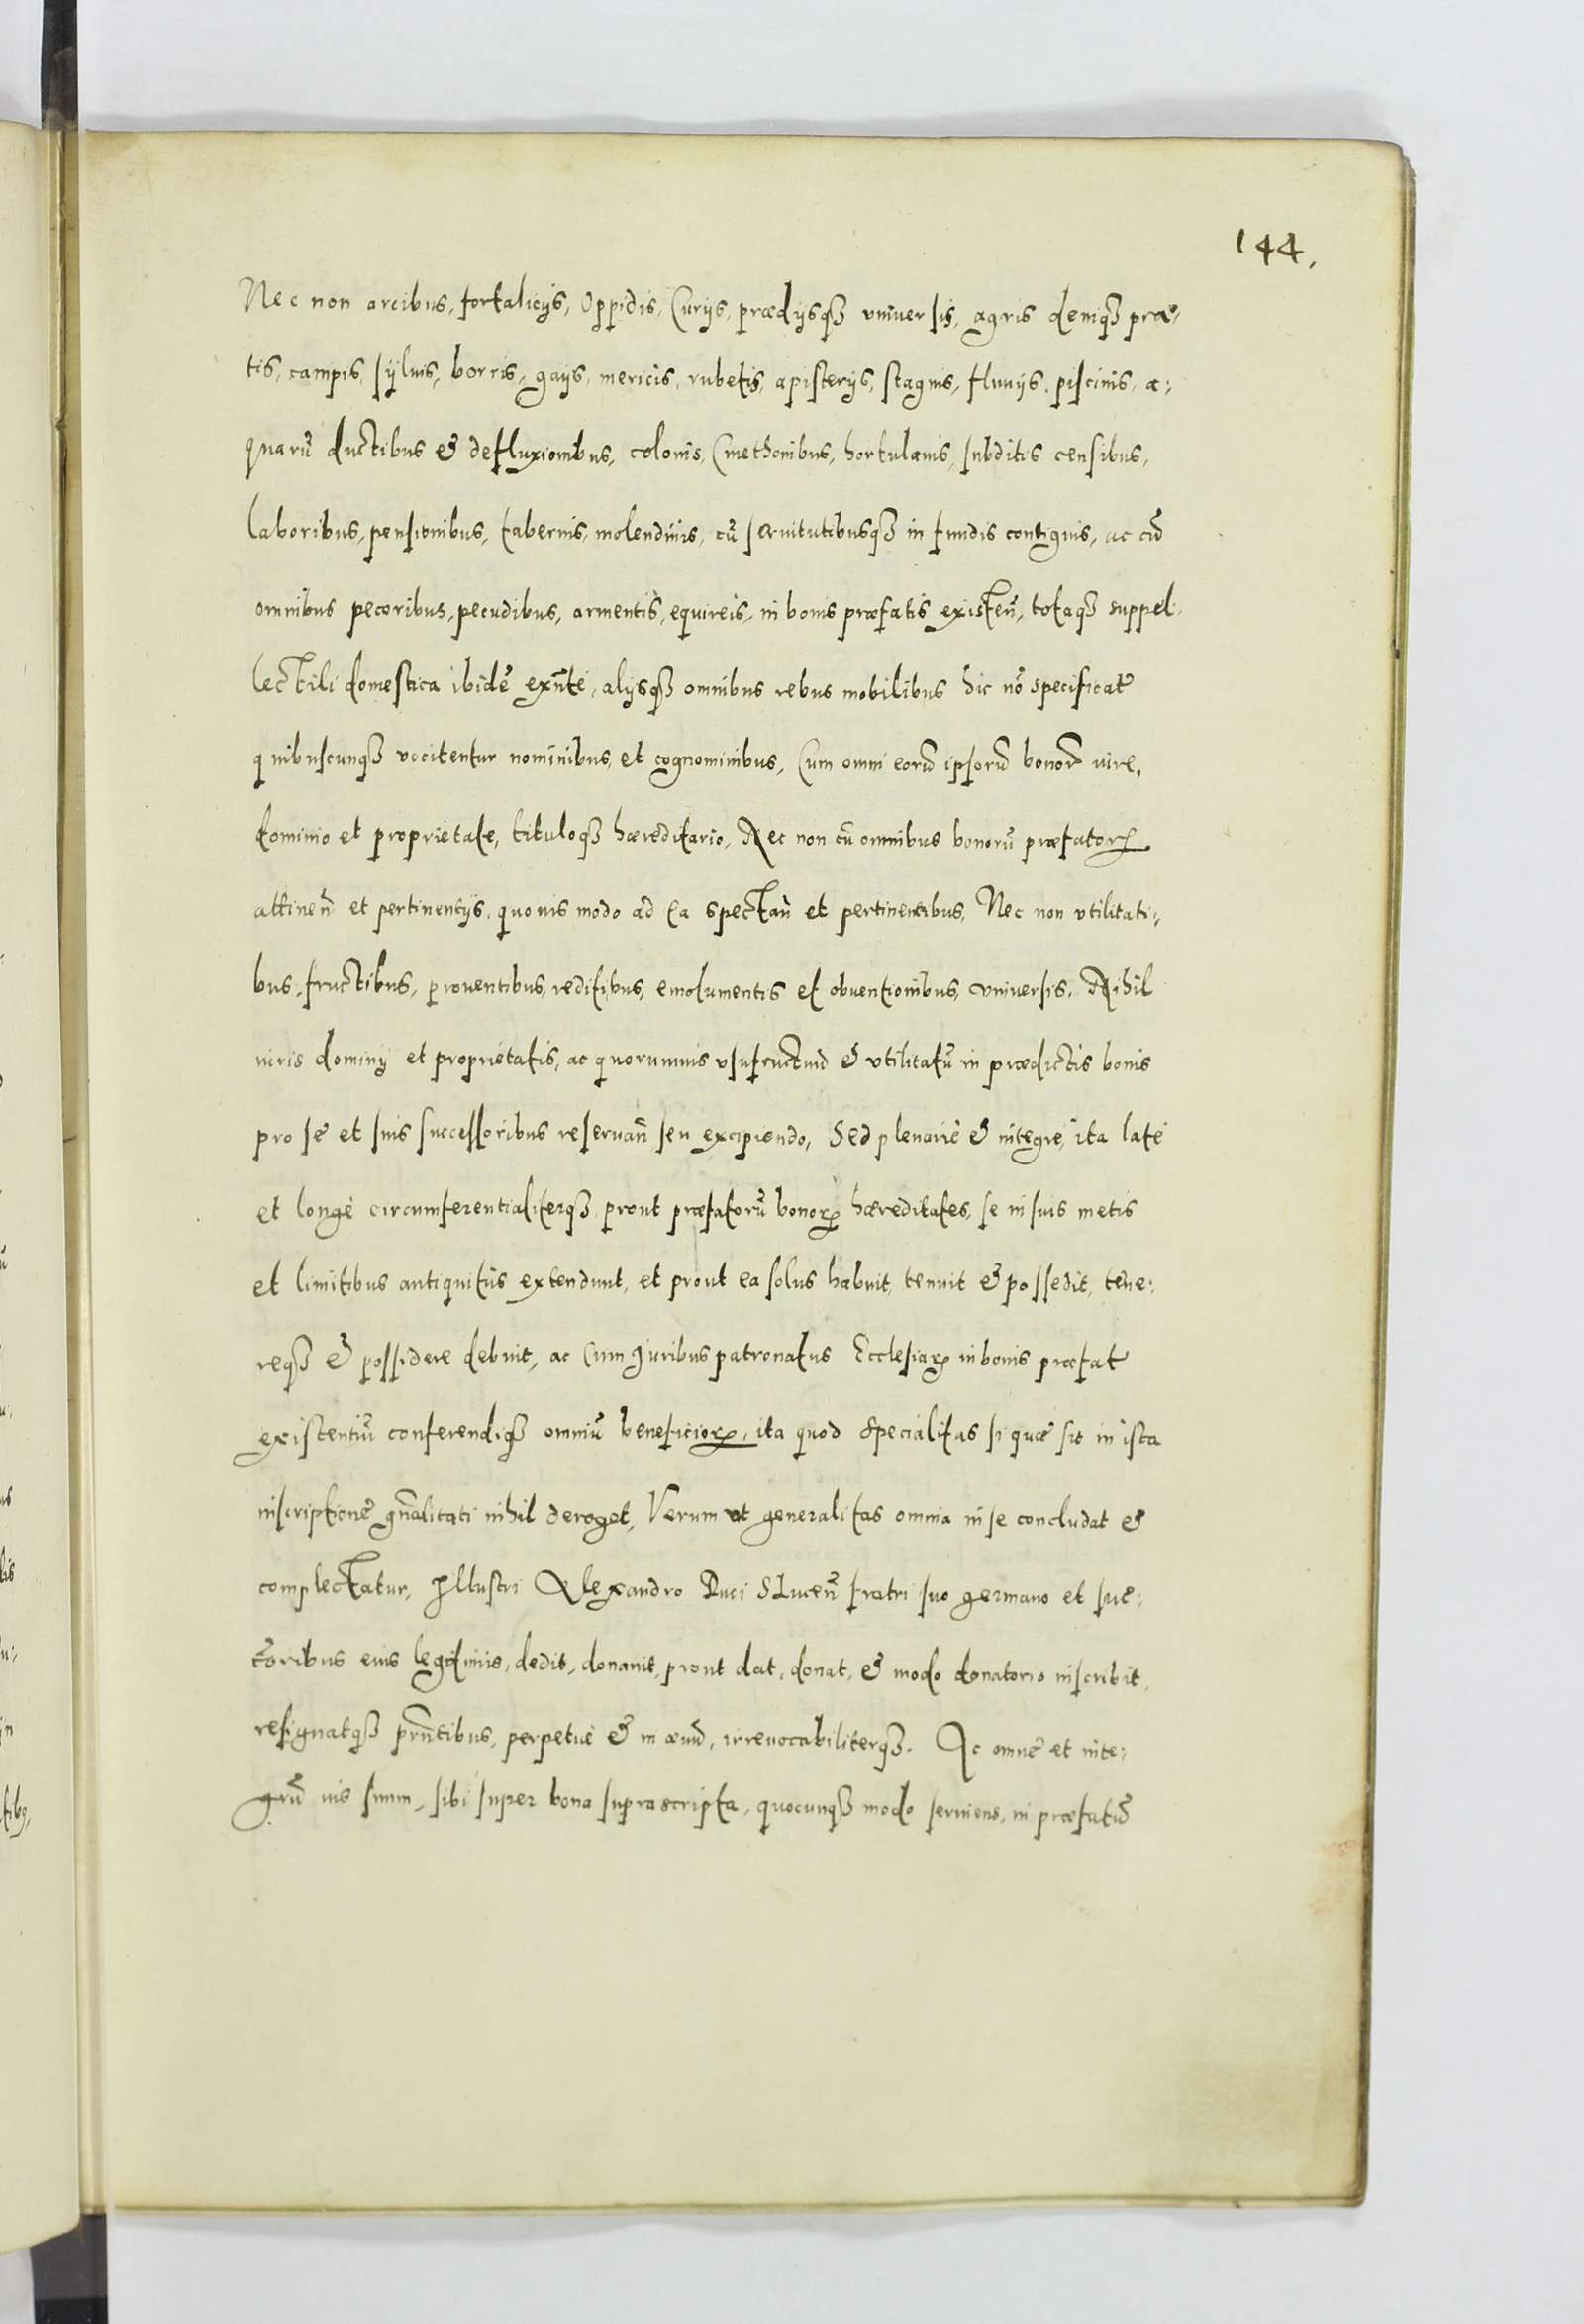 144.
Nec non arcibus, fortalicijs, Oppidis, Curijs, prædijsqȝ vniuersis, agris deniqȝ pra-
tis, campis, syluis, borris, gays, mericis, rubetis, apisterijs, stagnis, fluuijs, piscinis, a:
quarū ductibus & defluxionibus, colonis, Cmethonibus, hortulanis, subditis censibus,
laboribus, pensionibus, tabernis, molendinis, cū seruitutibusqȝ in fundis contiguis, ac cū
omnibus pecoribus, pecudibus, armentis, equireis, in bonis præfatis existen̄, totaqȝ suppel-
lectili domestica ibidē exn̄te, alijsqȝ omnibus rebus mobilibus hic nō specificat̄
quibuscunqȝ vocitentur nominibus et cognominibus, Cum omni eorū ipsorū bonorū iure,
dominio et proprietate, tituloqȝ hæreditario, Nec non cū omnibus bonorū præfatorꝝ
attinen̄ et pertinentijs, quouis modo ad ea spectan̄ et pertinentibus, Nec non vtilitati-
bus, fructibus, prouentibus, reditibus, emolumentis et obuentionibus, vniuersis. Nihil
iuris dominij et proprietatis, ac quorumuis vsufructuū & vtilitatū in prædictis bonis
pro se et suis successoribus reseruan̄ seu excipiendo, Sed plenariè & integrè, ita latè
et longè circumferentialiterqȝ prout præfatorū bonorꝝ hæreditates, se in suis metis
et limitibus antiquitùs extendunt, et prout ea solus habuit, tenuit & possedit, tene:
reqȝ & possidere debuit, ac Cum Juribus patronatus Ecclesiarꝝ in bonis præfat̄
existentiū conferendiqȝ omniū beneficiorꝝ, ita quod specialitas si quæ sit in ista
inscriptione gn̄alitati nihil deroget, Verum vt generalitas omnia in se concludat &
complectatur, Illustri Alexandro Duci Slucen̄ fratri suo germano et suc̄:
c̄oribus eius legitimis, dedit, donauit, prout dat, donat, & modo donatorio inscribit,
resignatqȝ prn̄tibus, perpetuè & in æuū, irreuocabiliterqȝ. Ac omne et inte:
grū ius suum, sibi super bona suprascripta, quocunqȝ modo seruiens, in præfatū